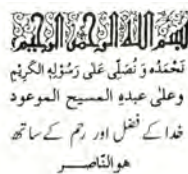 بسم الله الرحمن الرحيم
نَحْمَدُه وَ نُصَلِّى عَلى رَسُوْلِهِ الكَرِيْمِ
وعلى عبدهِ المسيح الموعود
خدا کے فضل اور رحم کے ساتھ
هو النّاصر